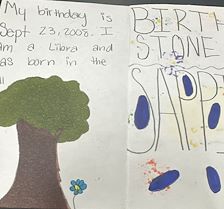 My birthday is
Sept 23, 2008. I
am a Libra and
as born in the
ll
BIRT
STONE
SAPP